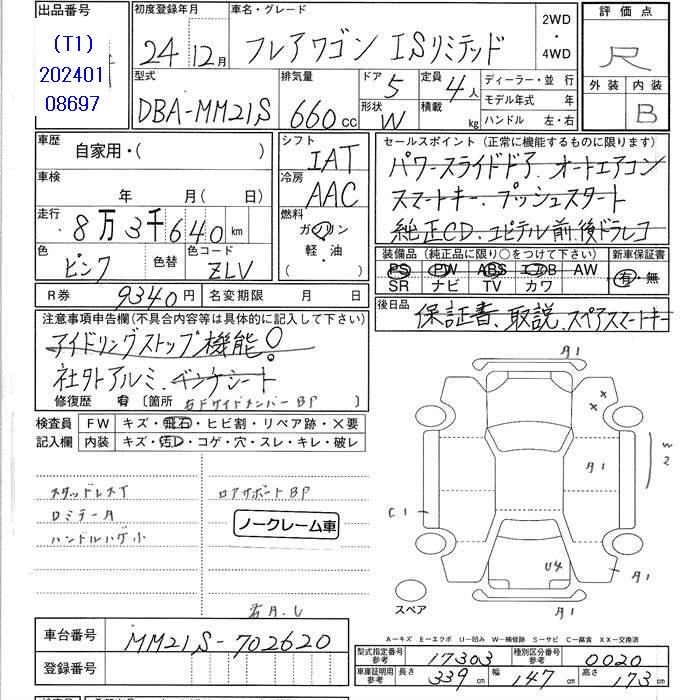 出品番号
(T1)
202401
08697
初度登録年月
24年12月
車名・グレード
フレアワゴン ISリミテッド
2WD
・
4WD
評価点
R
外装 内装
B
型式
DBA-MM21S
排気量
660cc
ドア 5
形状 W
定員 4人
積載 kg
ディーラー・並 行
モデル年式 年
ハンドル 左・右
車歴
自家用・( )
車検
年 月( 日)
走行
8万3千640km
色
ピンク
色替
色コード
ZLV
シフト
IAT
冷房
AAC
燃料
ガソリン
軽・油
( )
セールスポイント (正常に機能するものに限ります)
パワースライドドア、オートエアコン
スマートキー、プッシュスタート
純正CD、ユピテル前、後ドラレコ
装備品 (純正品に限り○をつけて下さい) 新車保証書
PS PW ABS エアB AW 有・無
SR ナビ TV カワ
R券 9340円 名変期限 月 日
後日品
保証書、取説、スペアスマートキー
注意事項申告欄(不具合内容等は具体的に記入して下さい)
アイドリングストップ機能!
社外アルミ、ベンチシート
修復歴 有 〔箇所 右Fサイドメンバー BP 〕
検査員 FW キズ・飛石・ヒビ割・リペア跡・×要
記入欄 内装 キズ・汚れ・コゲ・穴・スレ・キレ・破レ
スタッドレスT
ロミテータ
ハンドルハゲ小
ロアサポートBP
ノークレーム車
右A.U
A1
××
A1
W2
C1
U4
A1
A1
スペア
A－キズ E－エクボ U－凹み W－補修跡 S－サビ C－腐食 XX－交換済
車台番号
MM21S-702620
登録番号
型式指定番号 参考 17303 種別区分番号 参考 0020
車庫証明用 参考 長さ 339cm 幅 147cm 高さ 173cm